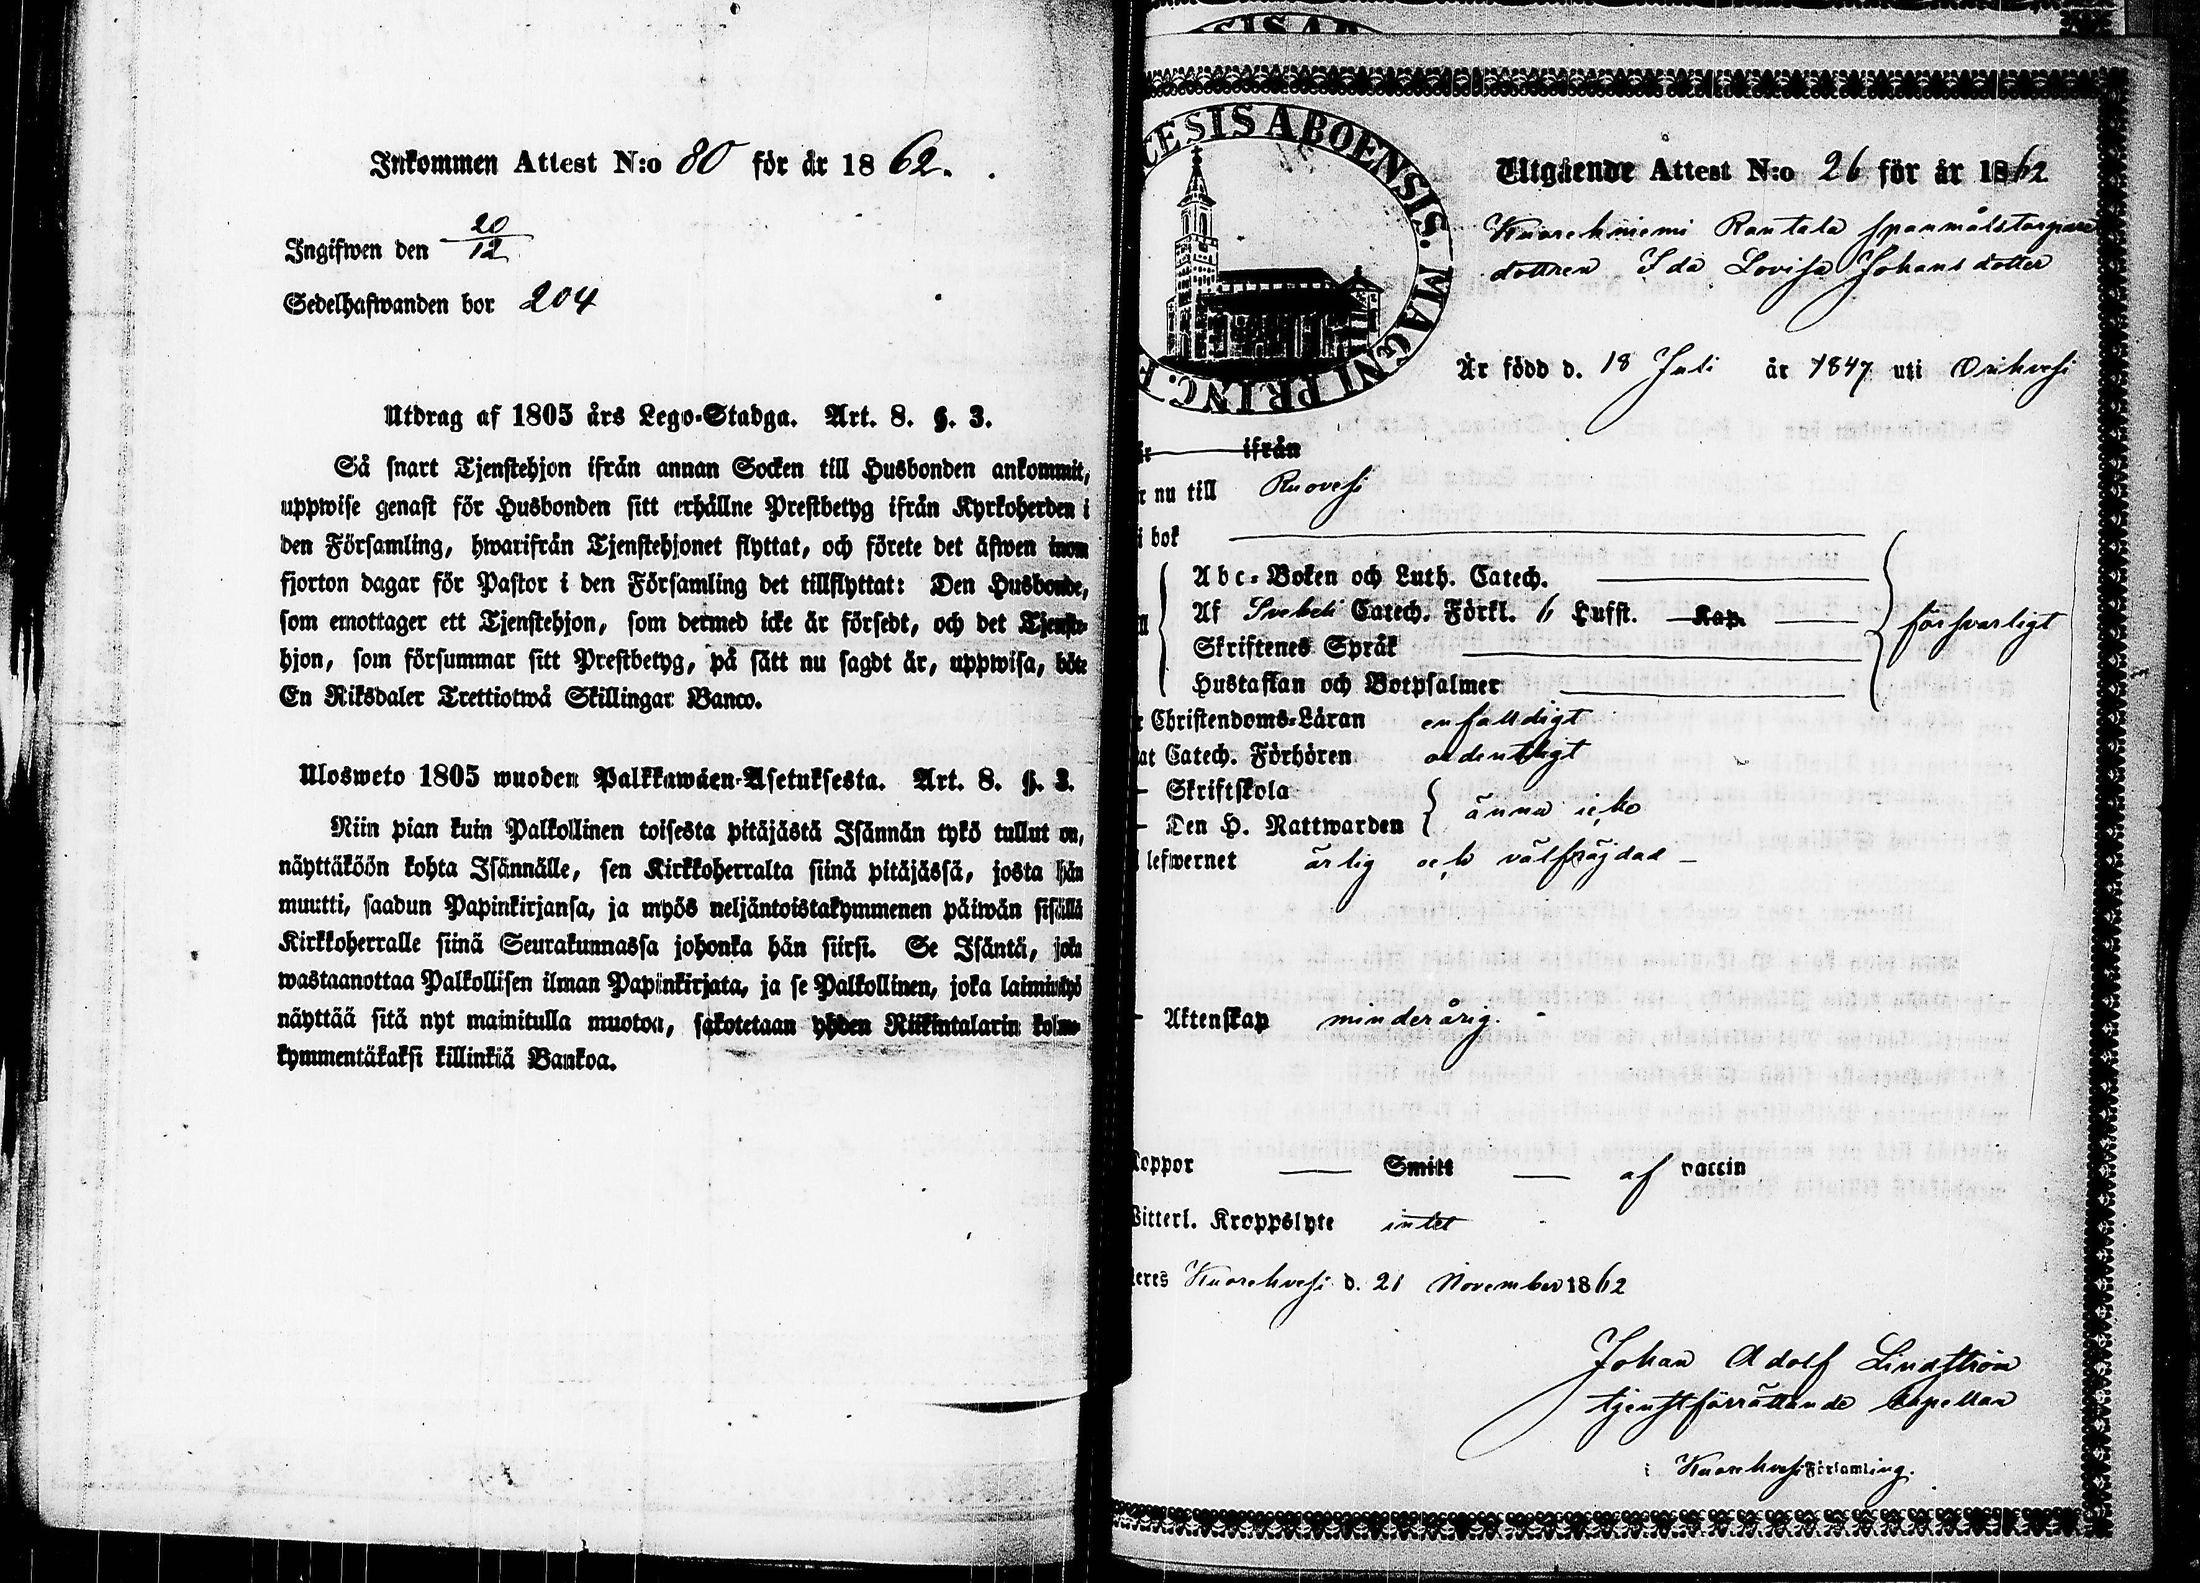 Inkommen Attest N:o 80 för år 1862.
Ingifwen den 20/12
Sedelhafwanden bor 204
Utdrag af 1805 års Lego-Stadga. Art. 8. §. 3.
Så snart Tjenstehjon ifrån annan Socken till Husbonden ankommit,
uppwise genast för Husbonden sitt erhållne Prestbetyg ifrån Kyrkoherden i
den Församling, hwarifrån Tjenstehjonet flyttat, och förete det äfwen inom
fjorton dagar för Pastor i den Församling det tillflyttat: Den Husbonde,
som emottager ett Tjenstehjon, som dermed icke är försedt, och det Tjenste-
hjon, som försummar sitt Prestbetyg, på sätt nu sagdt är, uppwisa, böte
En Riksdaler Trettiotwå Skillingar Banco.
Ulosweto 1805 wuoden Palkkawäen-Asetuksesta. Art. 8. §. 3.
Niin pian kuin Palkollinen toisesta pitäjästä Isännän tykö tullut on,
näyttäköön kohta Isännälle, sen Kirkkoherralta siinä pitäjässä, josta hän
muutti, saadun Papinkirjansa, ja myös neljäntoistakymmenen päiwän sisällä
Kirkkoherralle siinä Seurakunnassa johonka hän siirsi. Se Isäntä, joka
wastaanottaa Palkollisen ilman Papinkirjata, ja se Palkollinen, joka laiminlyö
näyttää sitä nyt mainitulla muotoa, sakotetaan yhden Riikintalarin kolme-
kymmentäkaksi killinkiä Bankoa.
SIS ABO
CESIS ABOENSIS. MAGNI PRINC. F
Utgående Attest N:o 26 för år 1862
Kuorehniemi Rantala spanmålstorpare
dottren Ida Lovisa Johansdotter
Är född d. 18 Juli år 1847 uti Orihvesi
ifrån
r nu till Ruovesi
i bok
Abc-Boken och Luth. Catech.
Af Svebeli Catech. Förkl. 6 Hufst. Kap.
försvarligt
Skriftenes Språk
Hustaflan och Botpsalmer
r Christendoms-Läran enfalldigt
at Catech. Förhören ordentligt
Skriftskola
ännu icke
Den H. Nattwarden
lefwernet ärlig och välfräjdad
Äktenskap minderårig.
koppor Smitt af vaccin
Witterl. Kroppslyte intet
eres Kuorehvesi d. 21 November 1862
Johan Adolf Lindström
tjenstförrättande Capellan
i Kuorehvesi Församling.